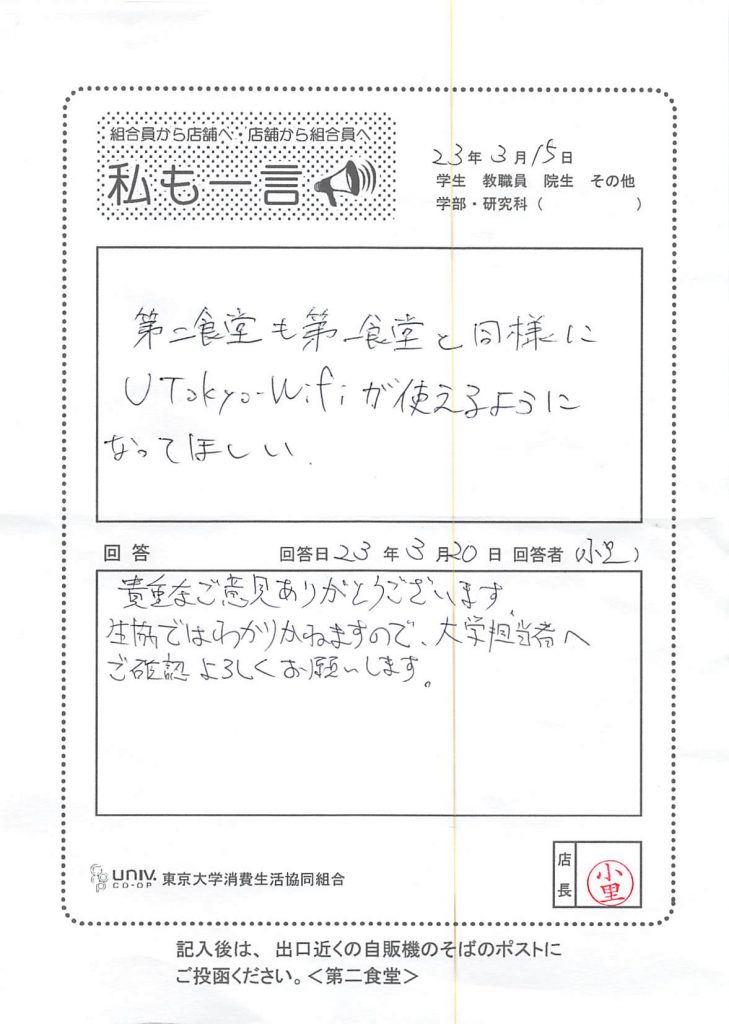 組合員から店舗へ・店舗から組合員へ
私も一言
23年3月15日
学生 教職員 院生 その他
学部・研究科（　　　）
第二食堂も第一食堂と同様に
UTokyo-Wifiが使えるように
なってほしい.
回答 回答日23年3月20日 回答者（小里）
貴重なご意見ありがとうございます。
生協ではわかりかねますので、大学担当者へ
ご確認よろしくお願いします。
UNIV. CO-OP 東京大学消費生活協同組合
店長 小里
記入後は、出口近くの自販機のそばのポストに
ご投函ください。＜第二食堂＞